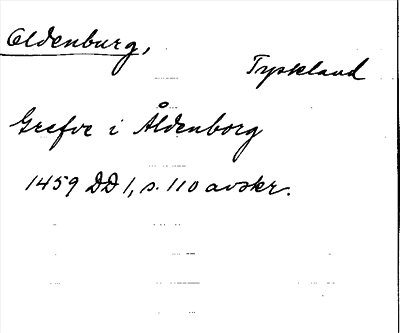 Oldenburg,
Tyskland
Grefve i Åldenborg
1459 DD 1, s. 110 avskr.